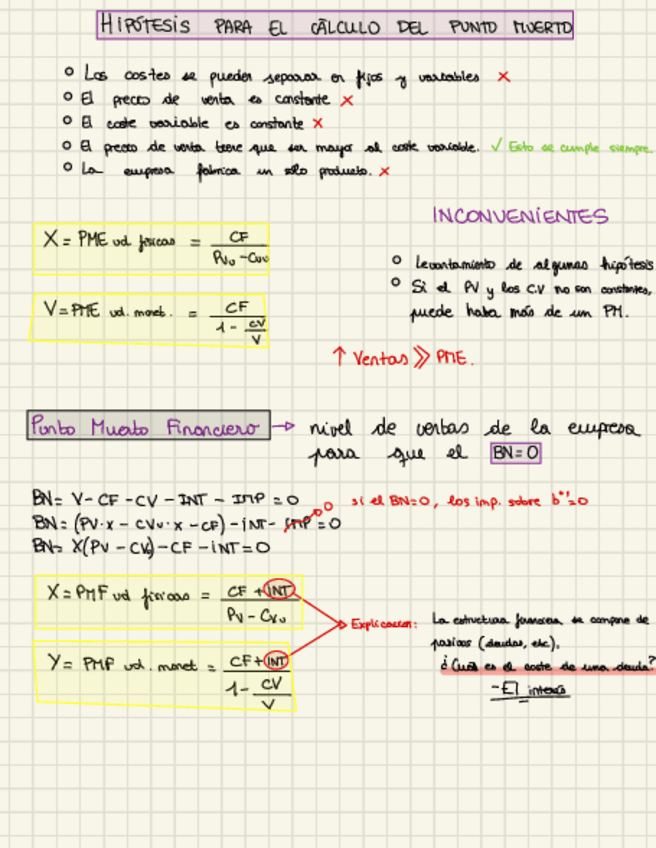 HIPÓTESIS PARA EL CÁLCULO DEL PUNTO MUERTO
o Los costes se pueden separar en fijos y variables ×
o El precio de venta es constante ×
o El coste variable es constante ×
o El precio de venta tiene que ser mayor al coste variable. ✓ Esto se cumple siempre.
o La empresa fabrica un sólo producto. ×
X = PME ud físicas = CF / (PVu - CVu)
V = PME ud. monet. = CF / (1 - CV/V)
INCONVENIENTES
o Levantamiento de algunas hipótesis
o Si el PV y los C.V no son constantes,
puede haber más de un PM.
↑ Ventas ≫ PME.
Punto Muerto Financiero → nivel de ventas de la empresa
para que el BN=0
BN= V-CF-CV-INT-IMP=0 si el BN=0, los imp. sobre bº=0
BN= (PV·x - CVu·x - CF) - INT - IMP=0
BN= X(PV - CV)-CF-INT=0
X = PMF ud físicas = (CF + INT) / (PV - CVu)
Y = PMF ud. monet = (CF + INT) / (1 - CV/V)
Explicación: La estructura financiera se compone de
pasivos (deudas, etc),
¿Cuál es el coste de una deuda?
- El interés